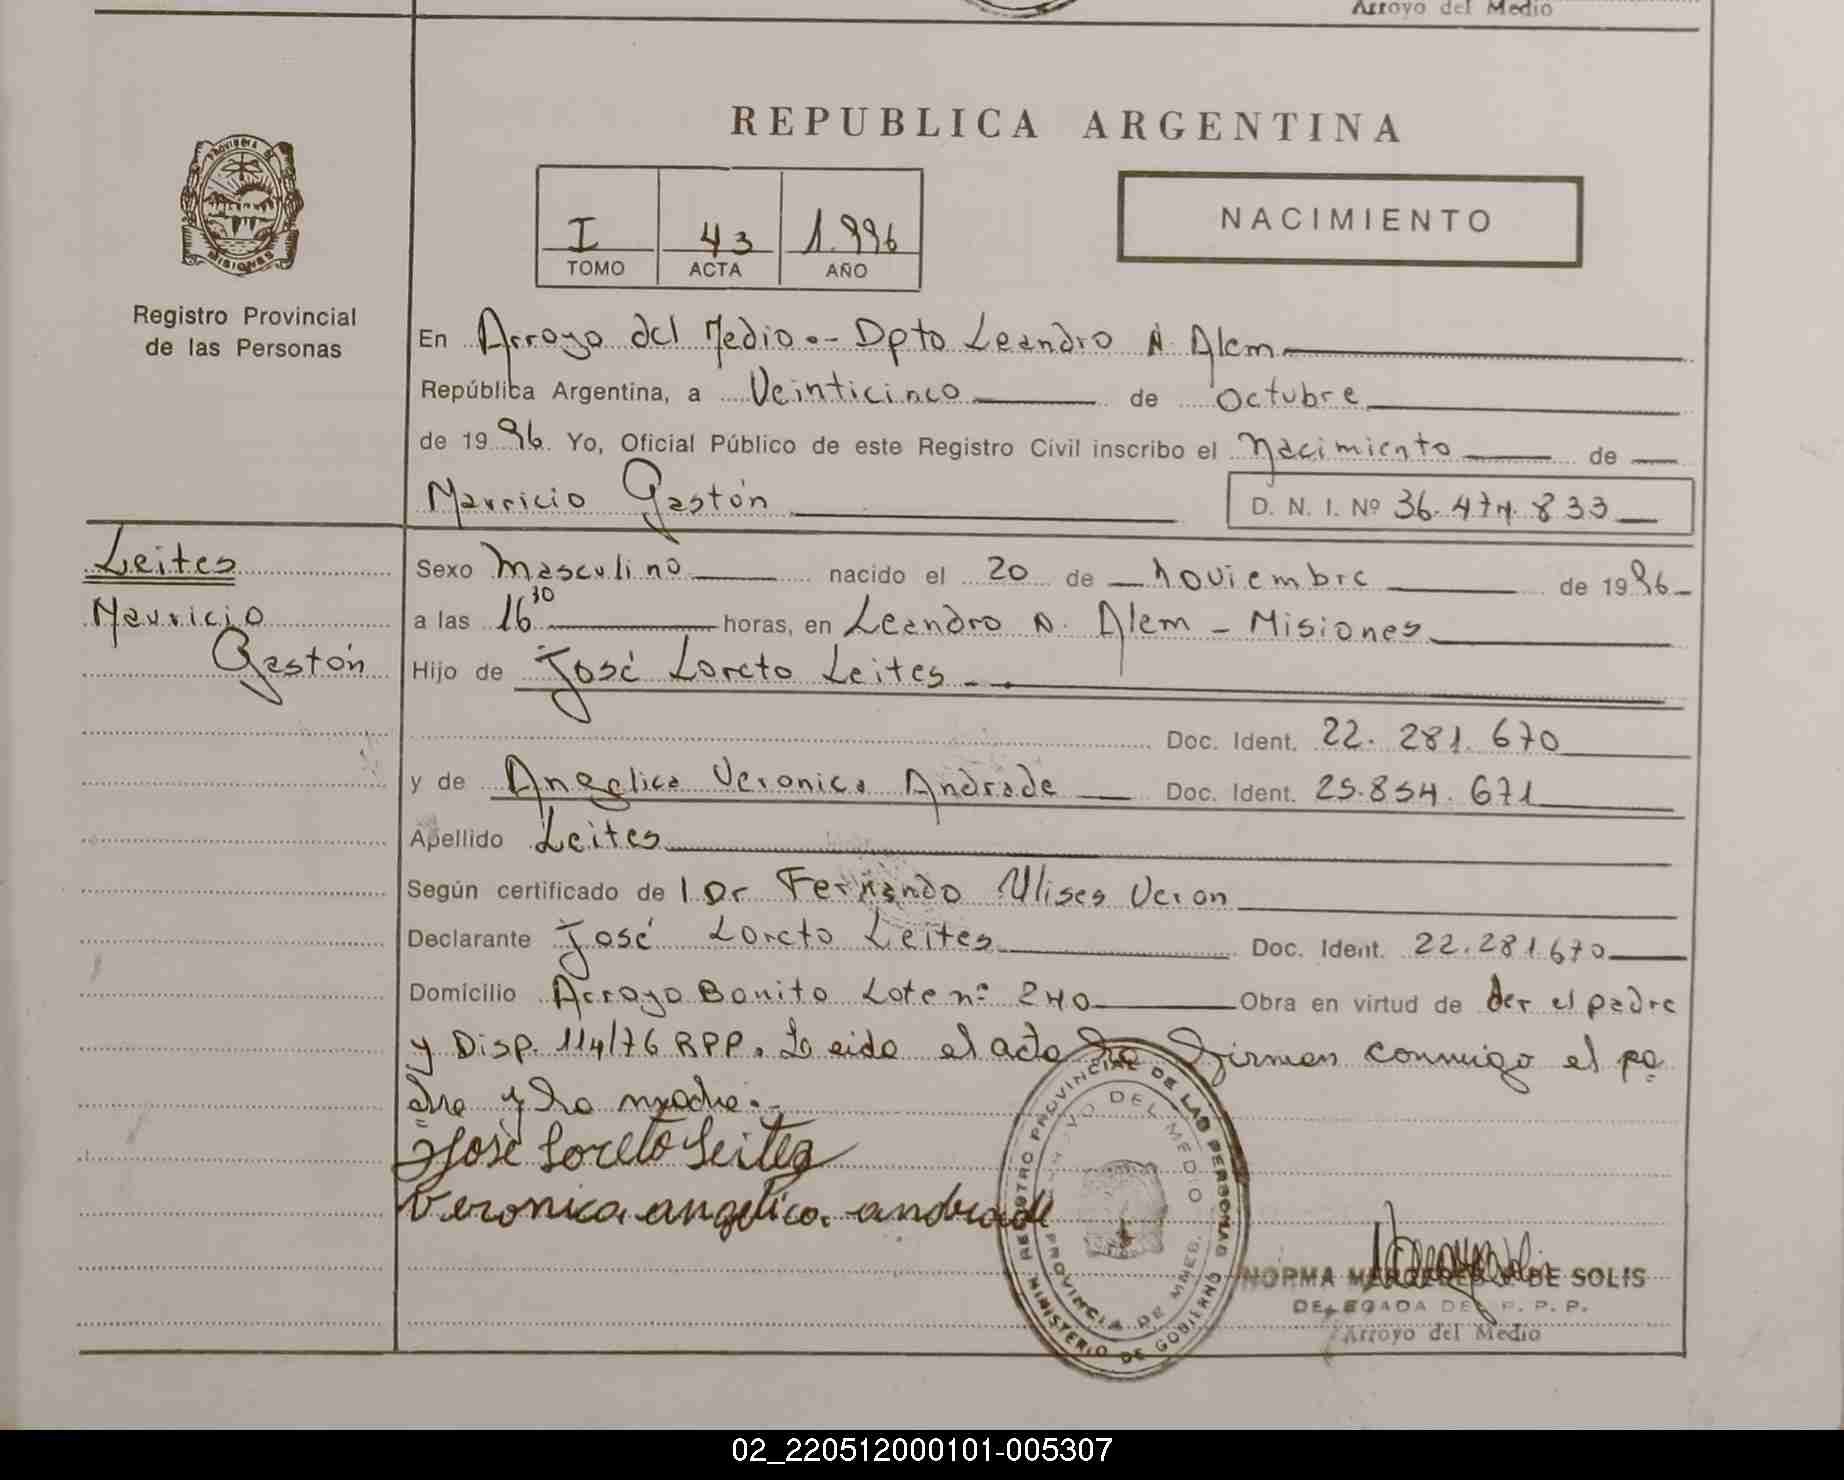 Arroyo del Medio
REPUBLICA ARGENTINA
PROVINCIA DE
MISIONES
I 43 1.996
TOMO ACTA AÑO
NACIMIENTO
Registro Provincial
de las Personas
En Arroyo del Medio.- Dpto Leandro N. Alem
República Argentina, a Veinticinco de octubre
de 1996. Yo, Oficial Público de este Registro Civil inscribo el nacimiento de
Mauricio Gastón
D. N. I. Nº 36.474.833
Leites
Mauricio
Gastón
Sexo Masculino nacido el 20 de noviembre de 1996
a las 16 30 horas, en Leandro N. Alem - Misiones
Hijo de José Loreto Leites
Doc. Ident. 22.281.670
y de Angelica Veronica Andrade Doc. Ident. 25.854.671
Apellido Leites
Según certificado de l Dr Fernando Ulises Veron
Declarante José Loreto Leites Doc. Ident. 22.281.670
Domicilio Arroyo Bonito Lote nº 240 Obra en virtud de der el padre
y Disp. 114/76 RPP. Leida el acta la firman conmigo el pa
dre y la madre.-
José Loreto Leites
Veronica angelica andrade
REGISTRO PROVINCIAL DE LAS PERSONAS
MINISTERIO DE GOBIERNO
ARROYO DEL MEDIO
PROVINCIA DE MNES.
NORMA MERCEDES DE SOLIS
DELEGADA DEL R. P. P.
Arroyo del Medio
02_220512000101-005307